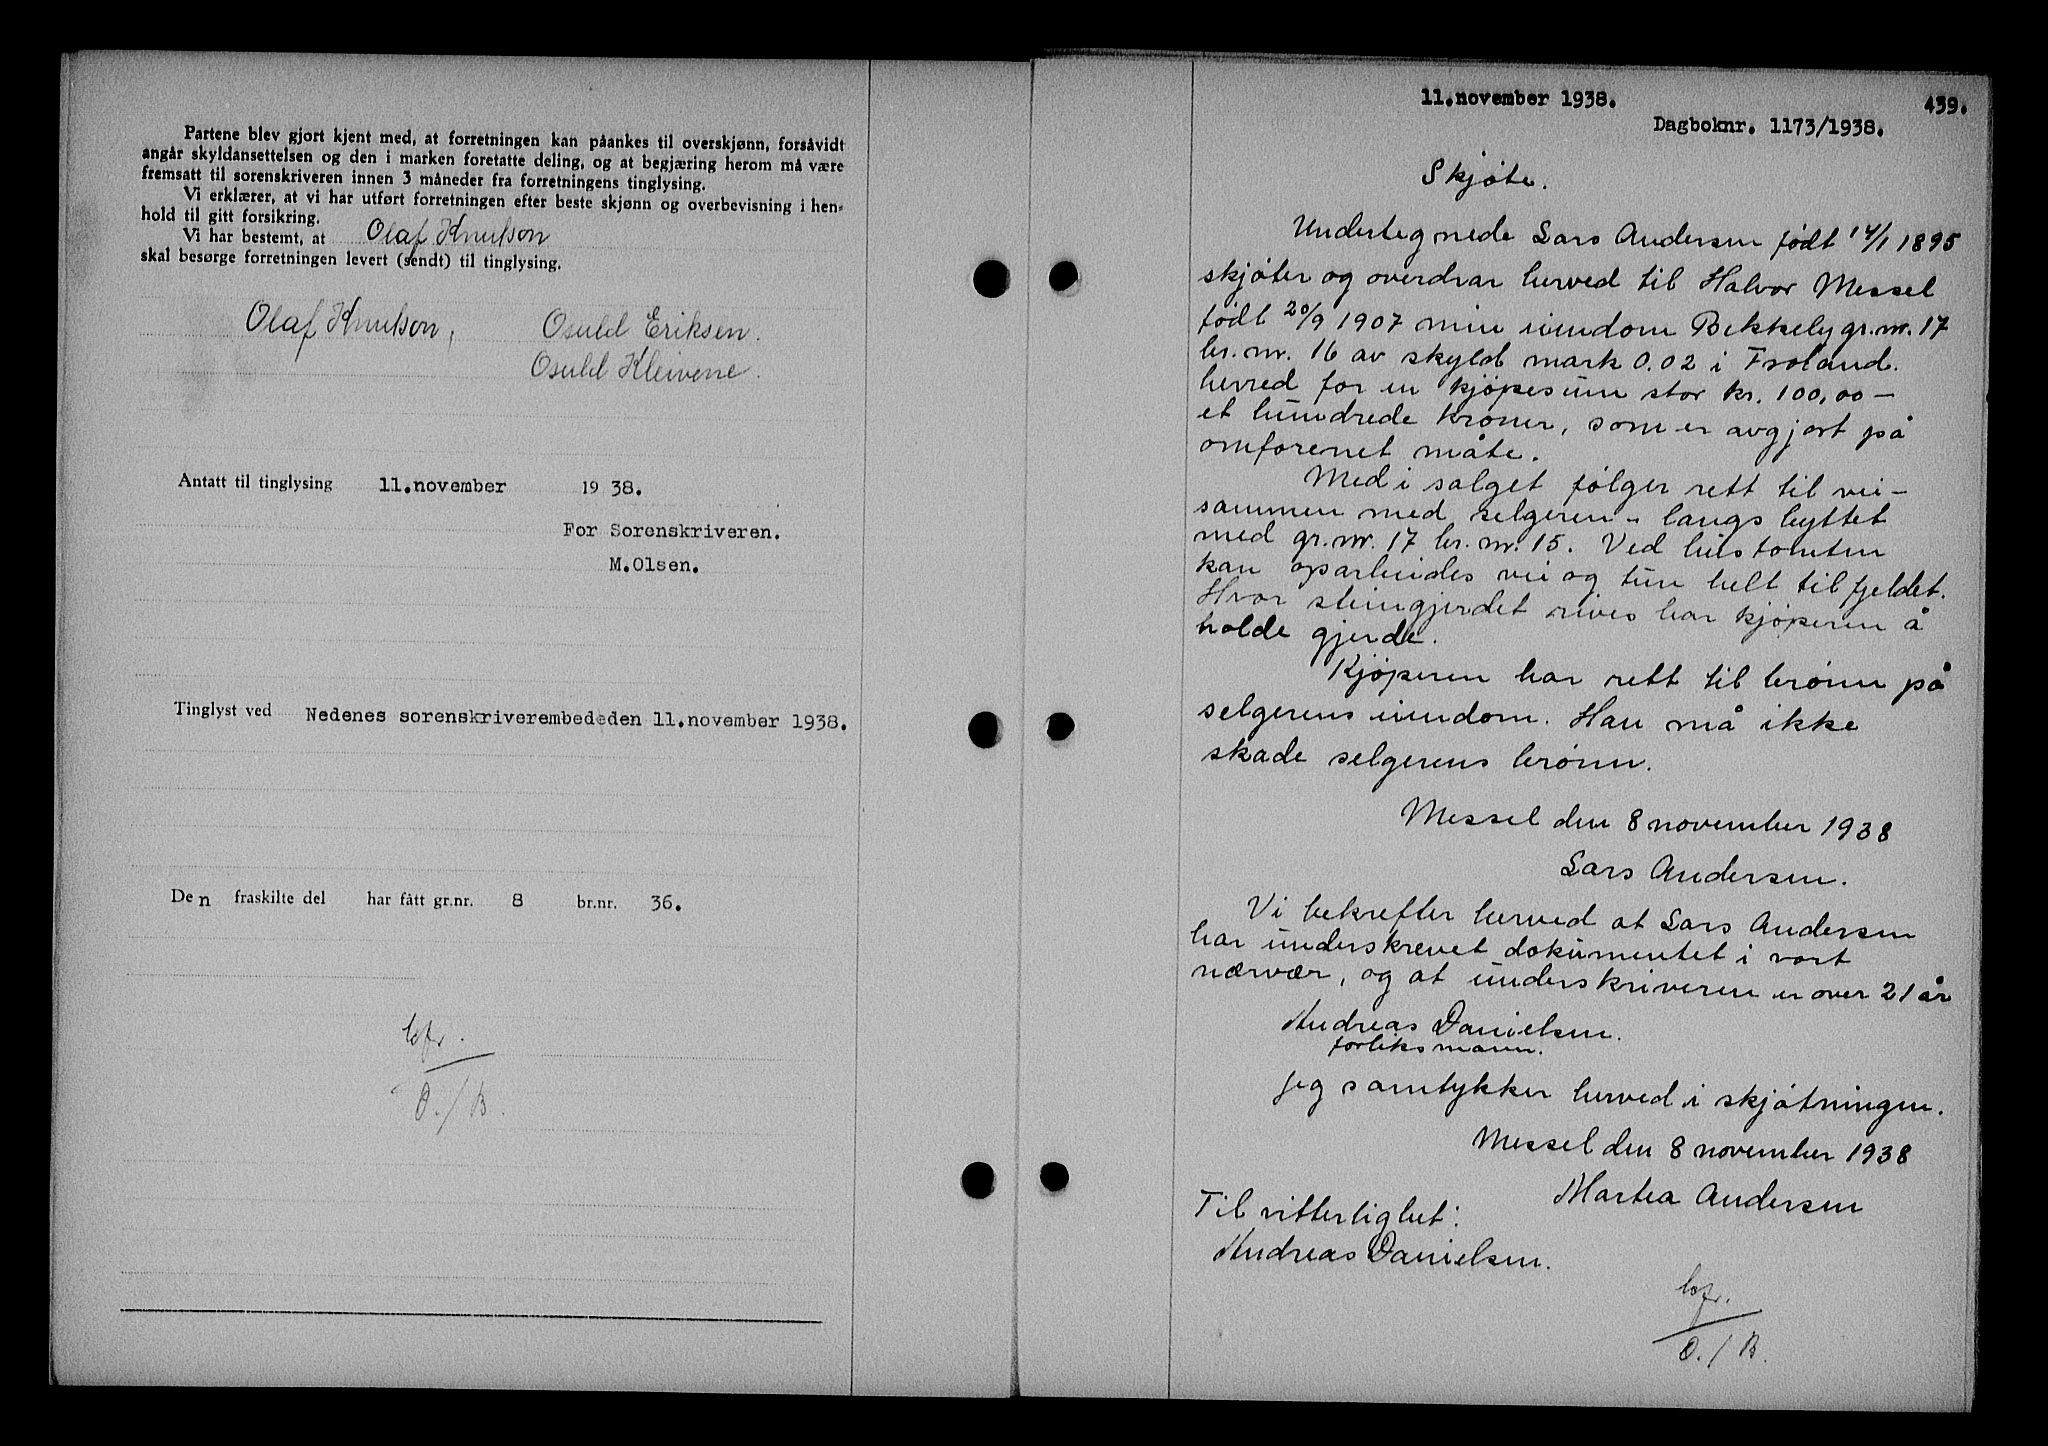 Partene blev gjort kjent med, at forretningen kan påankes til overskjønn, forsåvidt
angår skyldansettelsen og den i marken foretatte deling, og at begjæring herom må være
fremsatt til sorenskriveren innen 3 måneder fra forretningens tinglysing.
Vi erklærer, at vi har utført forretningen efter beste skjønn og overbevisning i hen-
hold til gitt forsikring.
Vi har bestemt, at Olaf Knutson
skal besørge forretningen levert (sendt) til tinglysing.
Olaf Knutson, Osuld Eriksen.
Osuld Kleivene.
Antatt til tinglysing 11.november 1938.
For Sorenskriveren.
M.Olsen.
Tinglyst ved Nedenes sorenskriverembededen 11.november 1938.
Den fraskilte del har fått gr.nr. 8 br.nr. 36.
O./B.
11.november 1938.
439.
Dagboknr. 1173/1938.
Skjøte.
Undertegnede Lars Andersen født 14/1 1895
skjøter og overdrar herved til Halvor Messel
født 20/9 1907 min eiendom Bekkely gr.nr. 17
br.nr. 16 av skyld mark 0.02 i Froland.
herred for en kjøpesum stor kr. 100,00 -
et hundrede kroner, som er avgjort på
omforenet måte.
Med i salget følger rett til vei -
sammen med selgeren - langs byttet
med gr.nr. 17 br.nr. 15. Ved hustomten
kan oparbeides vei og tun helt til fjeldet.
Hvor steingjerdet rives har kjøperen å
holde gjerde.
Kjøperen har rett til brønn på
selgerens eiendom. Han må ikke
skade selgerens brønn.
Messel den 8 november 1938
Lars Andersen.
Vi bekrefter herved at Lars Andersen
har underskrevet dokumentet i vort
nærvær, og at underskriveren er over 21 år
Andreas Danielsen.
forliksmann.
Jeg samtykker herved i skjøtningen.
Messel den 8 november 1938
Martea Andersen
Til vitterlighet:
Andreas Danielsen.
O./B.